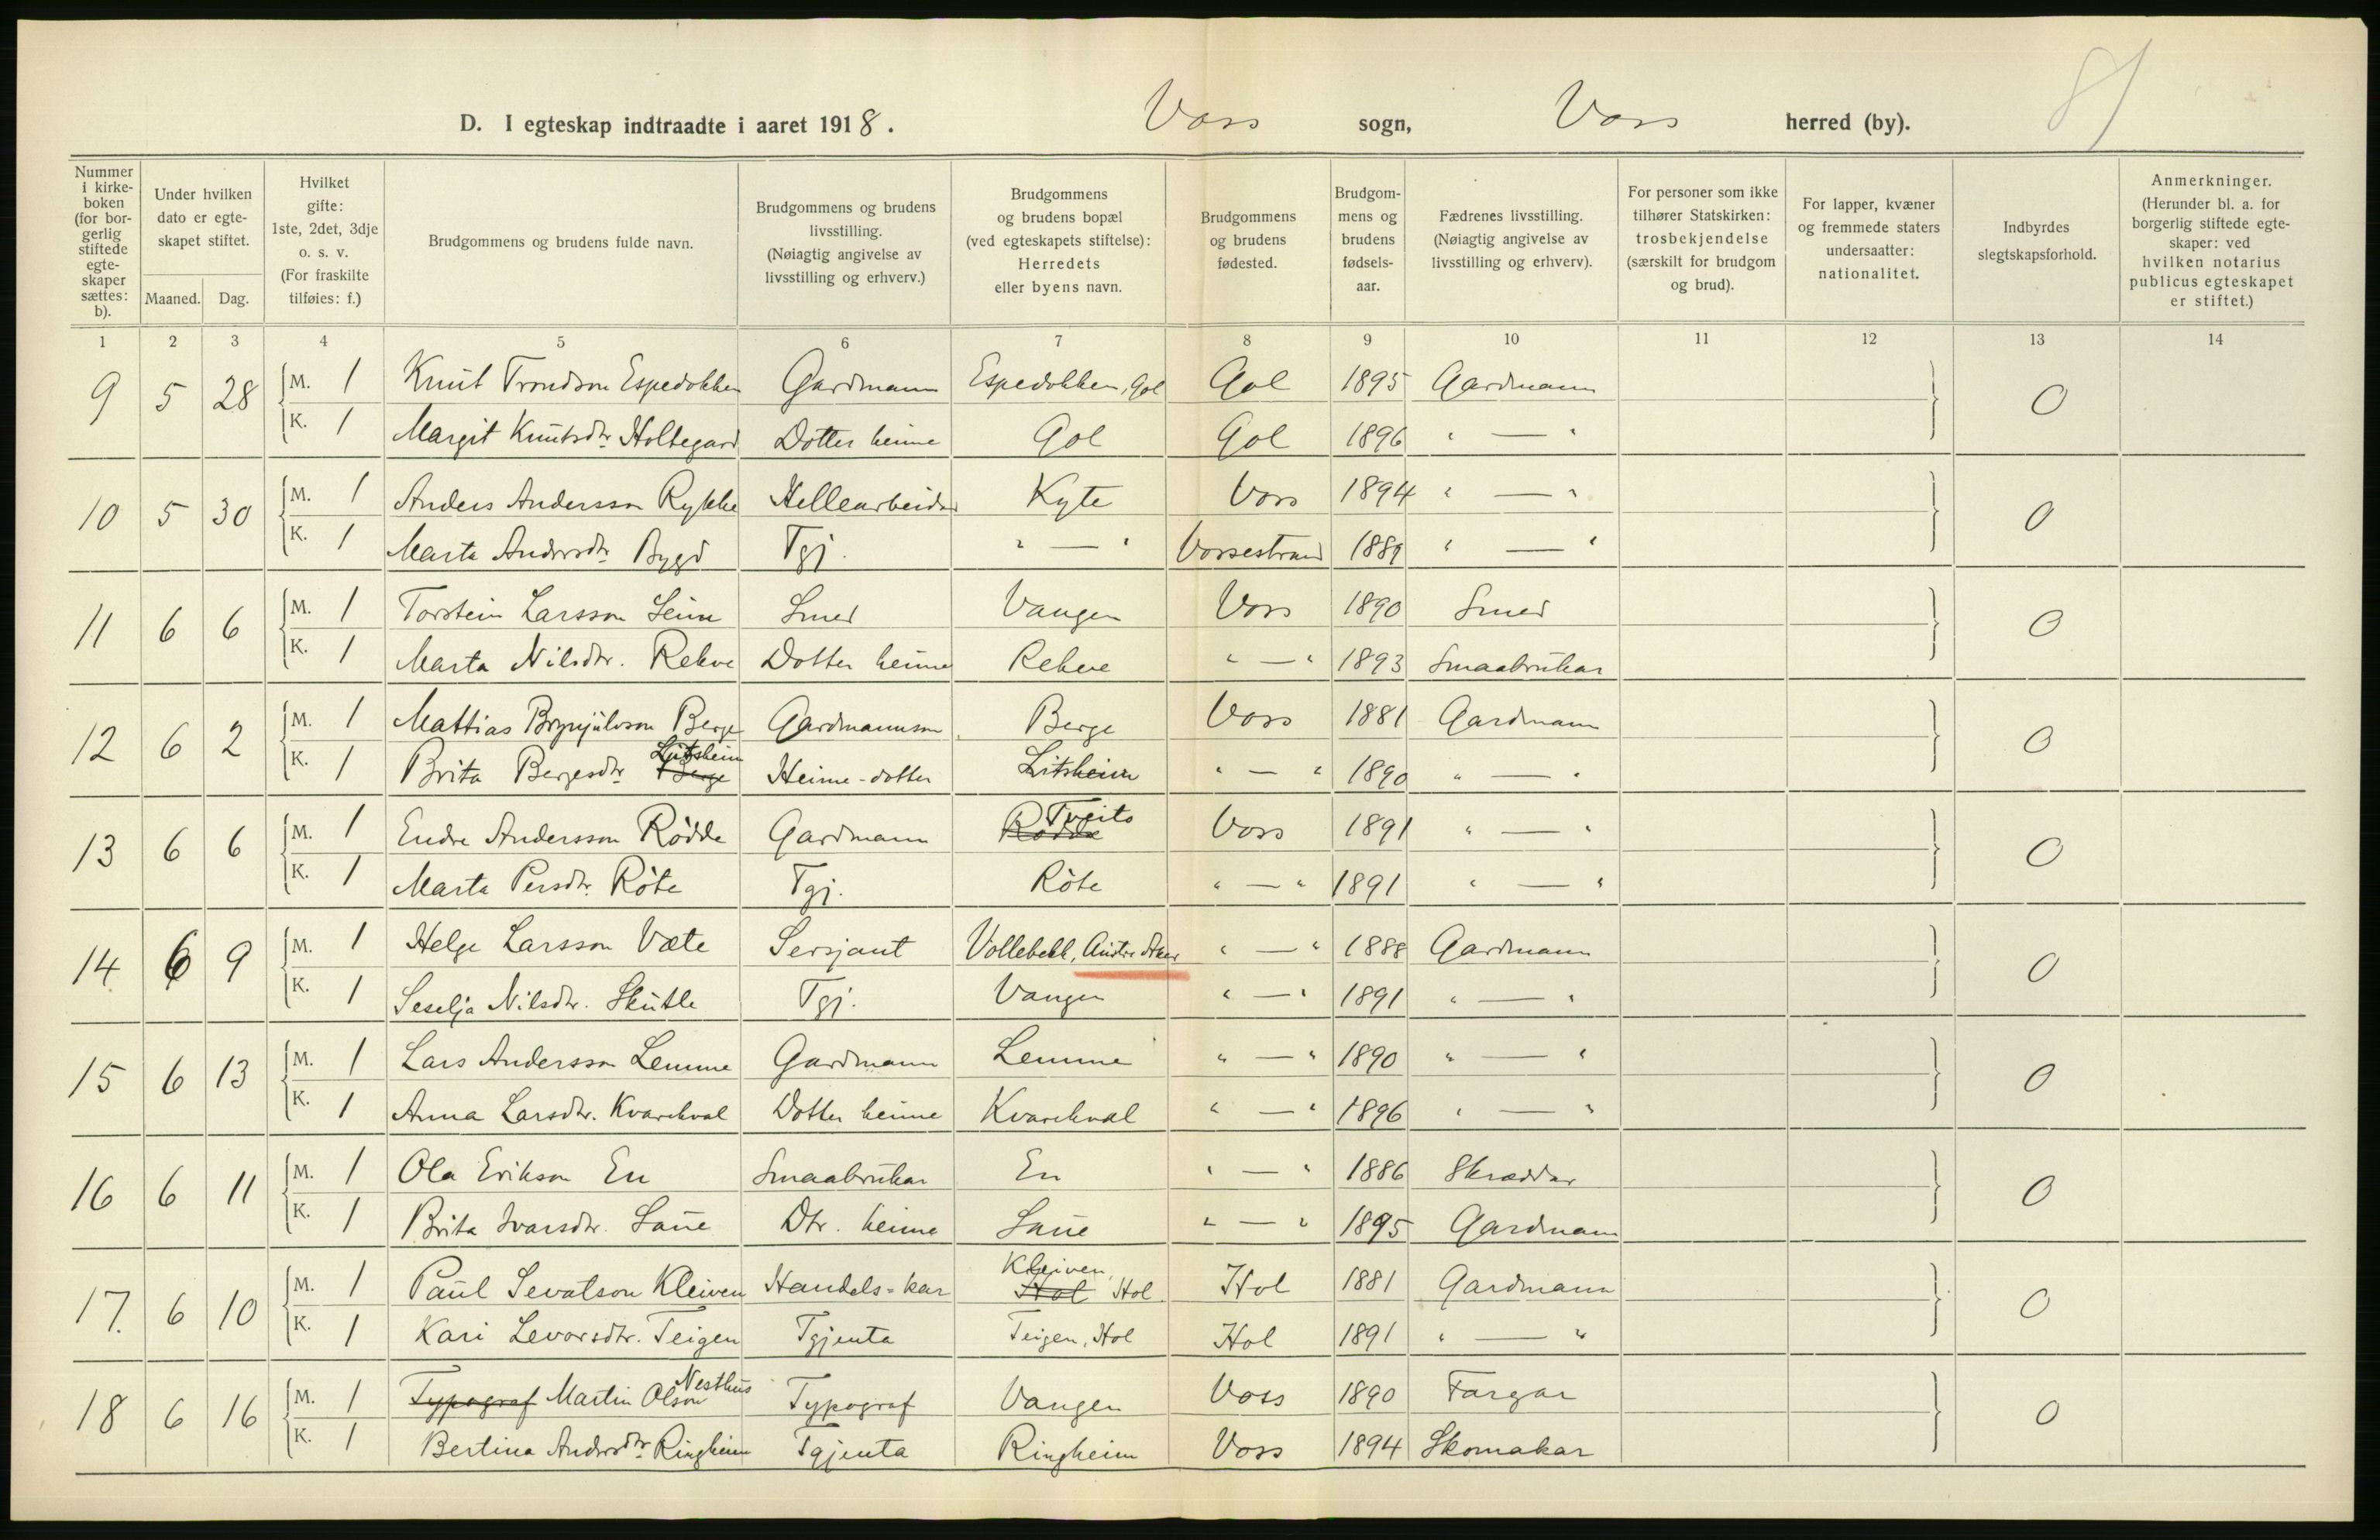 81
D. I egteskap indtraadte i aaret 1918. Voss sogn, Voss herred (by).
Nummer i kirkeboken (for borgerlig stiftede egteskaper sættes: b).
Under hvilken dato er egteskapet stiftet.
Maaned. Dag.
Hvilket gifte: 1ste, 2det, 3dje o. s. v. (For fraskilte tilføies: f.)
Brudgommens og brudens fulde navn.
Brudgommens og brudens livsstilling. (Nøiagtig angivelse av livsstilling og erhverv.)
Brudgommens og brudens bopæl (ved egteskapets stiftelse): Herredets eller byens navn.
Brudgommens og brudens fødested.
Brudgommens og brudens fødselsaar.
Fædrenes livsstilling. (Nøiagtig angivelse av livsstilling og erhverv).
For personer som ikke tilhører Statskirken: trosbekjendelse (særskilt for brudgom og brud).
For lapper, kvæner og fremmede staters undersaatter: nationalitet.
Indbyrdes slegtskapsforhold.
Anmerkninger. (Herunder bl. a. for borgerlig stiftede egteskaper: ved hvilken notarius publicus egteskapet er stiftet.)
1 2 3 4 5 6 7 8 9 10 11 12 13 14
9 5 28 M. 1 Knut Trondson Espedokken Gardmann Espedokken, Gol Gol 1895 Gardmann 0
K. 1 Margit Knutsdtr Holtegard Dotter heime Gol Gol 1896 " — "
10 5 30 M. 1 Anders Andersson Rykke Hellearbeidar Kyte Voss 1894 " — " 0
K. 1 Marta Andersdtr Bygd Tgj. " — " Vossestrand 1889 " — "
11 6 6 M. 1 Torstein Larsson Seim Smed Vangen Voss 1890 Smed 0
K. 1 Marta Nilsdtr. Rekve Dotter heime Rekve " — " 1893 Smaabrukar
12 6 2 M. 1 Mattias Brynjulvson Berge Gardmannson Berge Voss 1881 Gardmann 0
K. 1 Brita Bergesdtr Berge Litsheim Heime-dotter Litsheim " — " 1890 " — "
13 6 6 M. 1 Endre Andersson Rødde Gardmann Rødde Tveito Voss 1891 " — " 0
K. 1 Marta Persdtr. Röte Tgj. Röte " — " 1891 " — "
14 6 9 M. 1 Helge Larsson Væte Sersjant Vollebekk, Austre Aker " — " 1888 Gardmann 0
K. 1 Seselja Nilsdtr. Skutle Tgj. Vangen " — " 1891 " — "
15 6 13 M. 1 Lars Andersson Lemme Gardmann Lemme " — " 1890 " — " 0
K. 1 Anna Larsdtr. Kvarekval Dotter heime Kvarekval " — " 1896 " — "
16 6 11 M. 1 Ola Erikson En Smaabrukar En " — " 1886 Skræddar 0
K. 1 Brita Ivarsdtr. Saue Dtr. heime Saue " — " 1895 Gardmann
17. 6 10 M. 1 Paul Sevatson Kleiven Handels-kar Kleiven Hol Hol Hol 1881 Gardmann 0
K. 1 Kari Levorsdtr. Teigen Tgjenta Teigen, Hol Hol 1891 " — "
18 6 16 M. 1 Typograf Martin Olson Nesthus Typograf Vangen Voss 1890 Fargar 0
K. 1 Bertina Andersdtr Ringheim Tgjenta Ringheim Voss 1894 Skomakar